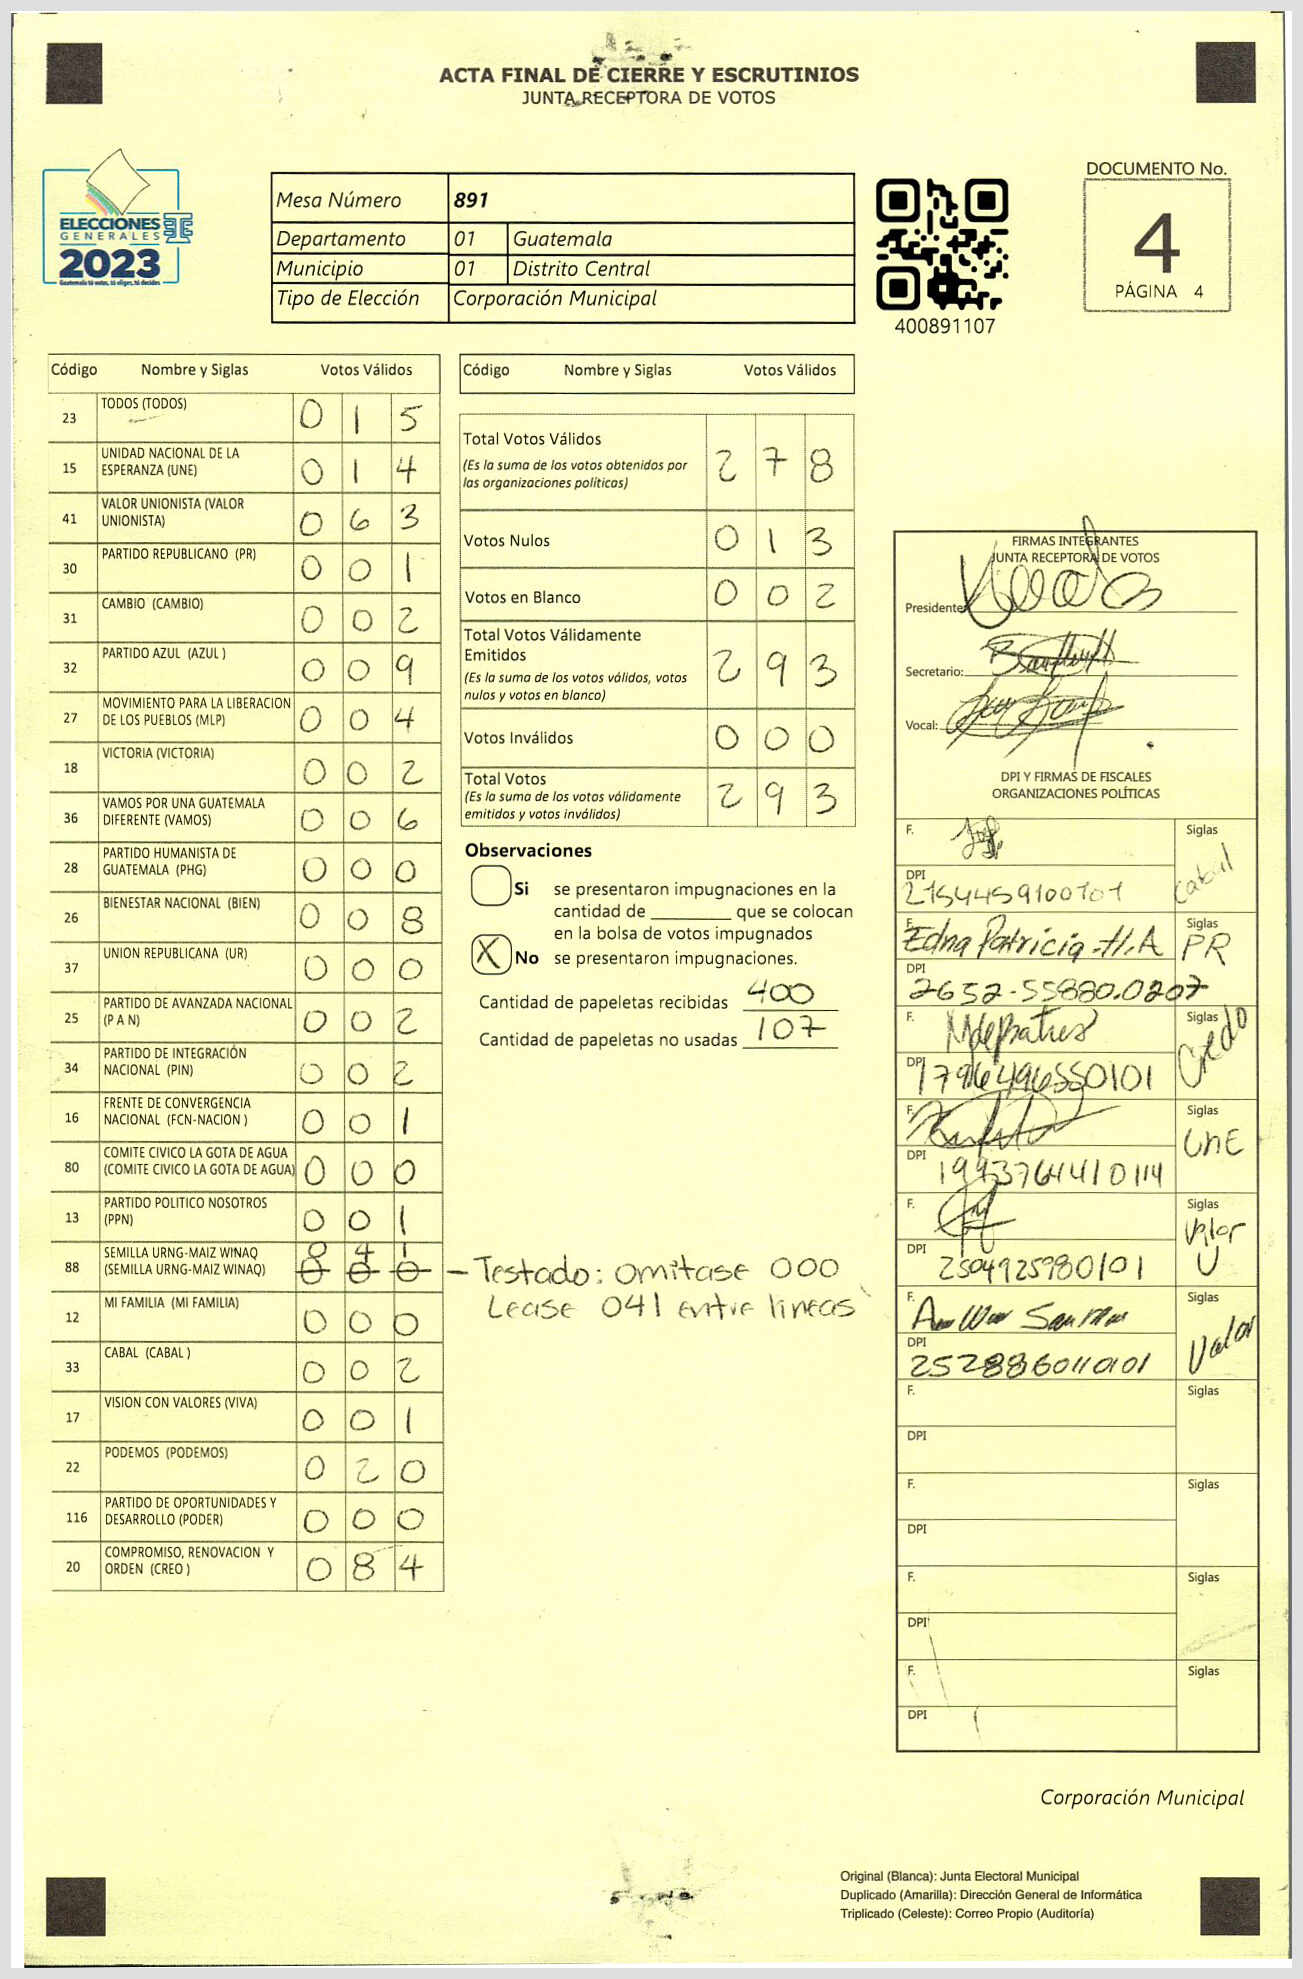 ACTA FINAL DE CIERRE Y ESCRUTINIOS
JUNTA RECEPTORA DE VOTOS
ELECCIONES
GENERALES
2023
Guatemala tú votas, tú eliges, tú decides
Mesa Número 891
Departamento 01 Guatemala
Municipio 01 Distrito Central
Tipo de Elección Corporación Municipal
400891107
DOCUMENTO No.
4
PÁGINA 4
Código Nombre y Siglas Votos Válidos
23 TODOS (TODOS) 0 1 5
15 UNIDAD NACIONAL DE LA
ESPERANZA (UNE) 0 1 4
41 VALOR UNIONISTA (VALOR
UNIONISTA) 0 6 3
30 PARTIDO REPUBLICANO (PR) 0 0 1
31 CAMBIO (CAMBIO) 0 0 2
32 PARTIDO AZUL (AZUL ) 0 0 9
27 MOVIMIENTO PARA LA LIBERACION
DE LOS PUEBLOS (MLP) 0 0 4
18 VICTORIA (VICTORIA) 0 0 2
36 VAMOS POR UNA GUATEMALA
DIFERENTE (VAMOS) 0 0 6
28 PARTIDO HUMANISTA DE
GUATEMALA (PHG) 0 0 0
26 BIENESTAR NACIONAL (BIEN) 0 0 8
37 UNION REPUBLICANA (UR) 0 0 0
25 PARTIDO DE AVANZADA NACIONAL
(P A N) 0 0 2
34 PARTIDO DE INTEGRACIÓN
NACIONAL (PIN) 0 0 2
16 FRENTE DE CONVERGENCIA
NACIONAL (FCN-NACION ) 0 0 1
80 COMITE CIVICO LA GOTA DE AGUA
(COMITE CIVICO LA GOTA DE AGUA) 0 0 0
13 PARTIDO POLITICO NOSOTROS
(PPN) 0 0 1
88 SEMILLA URNG-MAIZ WINAQ 0 4 1
(SEMILLA URNG-MAIZ WINAQ) 0 0 0
- Testado: omitase 000
Lease 041 entre lineas
12 MI FAMILIA (MI FAMILIA) 0 0 0
33 CABAL (CABAL ) 0 0 2
17 VISION CON VALORES (VIVA) 0 0 1
22 PODEMOS (PODEMOS) 0 2 0
116 PARTIDO DE OPORTUNIDADES Y
DESARROLLO (PODER) 0 0 0
20 COMPROMISO, RENOVACION Y
ORDEN (CREO ) 0 8 4
Código Nombre y Siglas Votos Válidos
Total Votos Válidos 2 7 8
(Es la suma de los votos obtenidos por
las organizaciones políticas)
Votos Nulos 0 1 3
Votos en Blanco 0 0 2
Total Votos Válidamente
Emitidos 2 9 3
(Es la suma de los votos válidos, votos
nulos y votos en blanco)
Votos Inválidos 0 0 0
Total Votos 2 9 3
(Es la suma de los votos válidamente
emitidos y votos inválidos)
Observaciones
Si se presentaron impugnaciones en la
cantidad de ________ que se colocan
en la bolsa de votos impugnados
X No se presentaron impugnaciones.
Cantidad de papeletas recibidas 400
Cantidad de papeletas no usadas 107
FIRMAS INTEGRANTES
JUNTA RECEPTORA DE VOTOS
Presidente:
Secretario:
Vocal:
DPI Y FIRMAS DE FISCALES
ORGANIZACIONES POLÍTICAS
F. Siglas
DPI Cabal
F. Edna Patricia H.A Siglas PR
DPI 2652-55880.0207
F. Siglas
DPI 1796496550101 Credo
F. Siglas
UNE
DPI 1993764410114
F. Siglas
Valor
U
DPI 2504925980101
F. Siglas
Valor
DPI 2528860110101
F. Siglas
DPI
F. Siglas
DPI
F. Siglas
DPI
F. Siglas
DPI
Corporación Municipal
Original (Blanca): Junta Electoral Municipal
Duplicado (Amarilla): Dirección General de Informática
Triplicado (Celeste): Correo Propio (Auditoría)